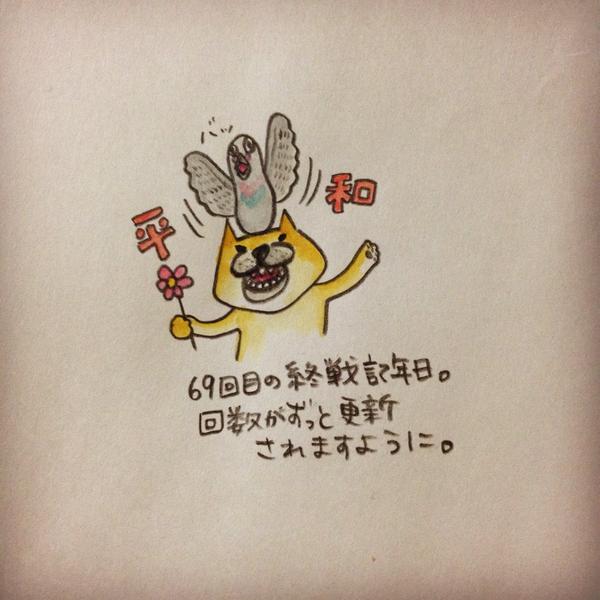 バッ
平和
69回目の終戦記年日。
回数がずっと更新
されますように。